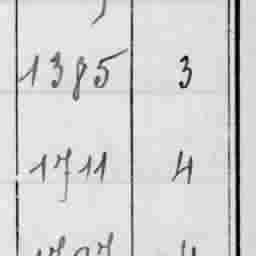 1385 3
1711 4